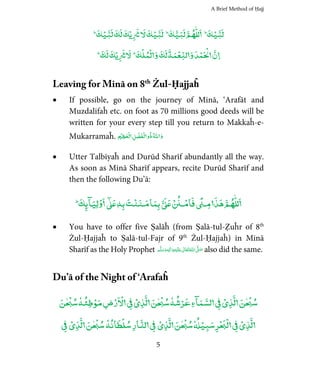 A Brief Method of Ḥajj
لَبَّيْكَ ۚ اَللّٰهُمَّ لَبَّيْكَ ۚ لَبَّيْكَ لَا شَرِيْكَ لَكَ لَبَّيْكَ ۚ
اِنَّ الْحَمْدَ وَالنِّعْمَةَ لَكَ وَالْمُلْكَ ۚ لَا شَرِيْكَ لَكَ ۚ
Leaving for Minā on 8th Żul-Ḥajjaĥ
• If possible, go on the journey of Minā, ‘Arafāt and
Muzdalifaĥ etc. on foot as 70 millions good deeds will be
written for your every step till you return to Makkaĥ-e-
Mukarramaĥ. وَاللّٰهُ ذُو الْفَضْلِ الْعَظِيْمِ
• Utter Talbiyaĥ and Durūd Sharīf abundantly all the way.
As soon as Minā Sharīf appears, recite Durūd Sharīf and
then the following Du’ā:
اَللّٰهُمَّ هٰذَا مِنًى فَامْنُنْ عَلَىَّ بِمَا مَنَنْتَ بِهٖ عَلٰى اَوْلِيَآئِكَ ؕ
• You have to offer five Ṣalāĥ (from Ṣalā-tul-Ẓuĥr of 8th
Żul-Ḥajjaĥ to Ṣalā-tul-Fajr of 9th Żul-Ḥajjaĥ) in Minā
Sharīf as the Holy Prophet صَلَّى اللّٰهُ تَعَالٰى عَلَيْهِ وَاٰلِهٖ وَسَلَّم also did the same.
Du’ā of the Night of ‘Arafaĥ
سُبْحٰنَ الَّذِىْ فِى السَّمَآءِ عَرْشُهٗ سُبْحٰنَ الَّذِىْ فِى الْاَرْضِ مَوْطِئُهٗ سُبْحٰنَ
الَّذِىْ فِى الْبَحْرِ سَبِيْلُهٗ سُبْحٰنَ الَّذِىْ فِى النَّارِ سُلْطَانُهٗ سُبْحٰنَ الَّذِىْ فِى
5